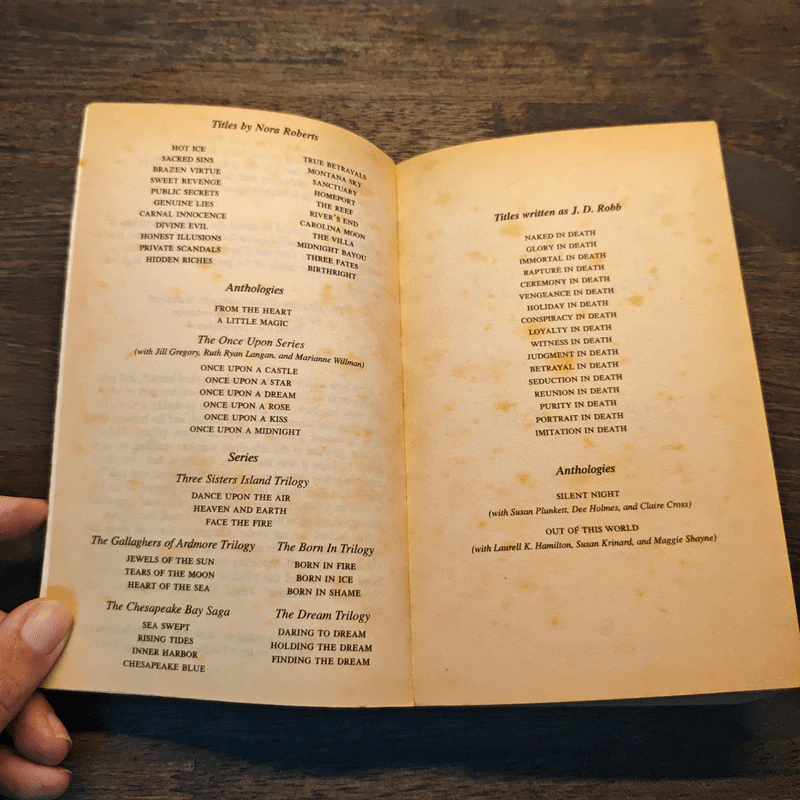 Titles by Nora Roberts
HOT ICE
SACRED SINS
BRAZEN VIRTUE
SWEET REVENGE
PUBLIC SECRETS
GENUINE LIES
CARNAL INNOCENCE
DIVINE EVIL
HONEST ILLUSIONS
PRIVATE SCANDALS
HIDDEN RICHES
TRUE BETRAYALS
MONTANA SKY
SANCTUARY
HOMEPORT
THE REEF
RIVER'S END
CAROLINA MOON
THE VILLA
MIDNIGHT BAYOU
THREE FATES
BIRTHRIGHT
Anthologies
FROM THE HEART
A LITTLE MAGIC
The Once Upon Series
(with Jill Gregory, Ruth Ryan Langan, and Marianne Willman)
ONCE UPON A CASTLE
ONCE UPON A STAR
ONCE UPON A DREAM
ONCE UPON A ROSE
ONCE UPON A KISS
ONCE UPON A MIDNIGHT
Series
Three Sisters Island Trilogy
DANCE UPON THE AIR
HEAVEN AND EARTH
FACE THE FIRE
The Gallaghers of Ardmore Trilogy
JEWELS OF THE SUN
TEARS OF THE MOON
HEART OF THE SEA
The Born In Trilogy
BORN IN FIRE
BORN IN ICE
BORN IN SHAME
The Chesapeake Bay Saga
SEA SWEPT
RISING TIDES
INNER HARBOR
CHESAPEAKE BLUE
The Dream Trilogy
DARING TO DREAM
HOLDING THE DREAM
FINDING THE DREAM
Titles written as J. D. Robb
NAKED IN DEATH
GLORY IN DEATH
IMMORTAL IN DEATH
RAPTURE IN DEATH
CEREMONY IN DEATH
VENGEANCE IN DEATH
HOLIDAY IN DEATH
CONSPIRACY IN DEATH
LOYALTY IN DEATH
WITNESS IN DEATH
JUDGMENT IN DEATH
BETRAYAL IN DEATH
SEDUCTION IN DEATH
REUNION IN DEATH
PURITY IN DEATH
PORTRAIT IN DEATH
IMITATION IN DEATH
Anthologies
SILENT NIGHT
(with Susan Plunkett, Dee Holmes, and Claire Cross)
OUT OF THIS WORLD
(with Laurell K. Hamilton, Susan Krinard, and Maggie Shayne)